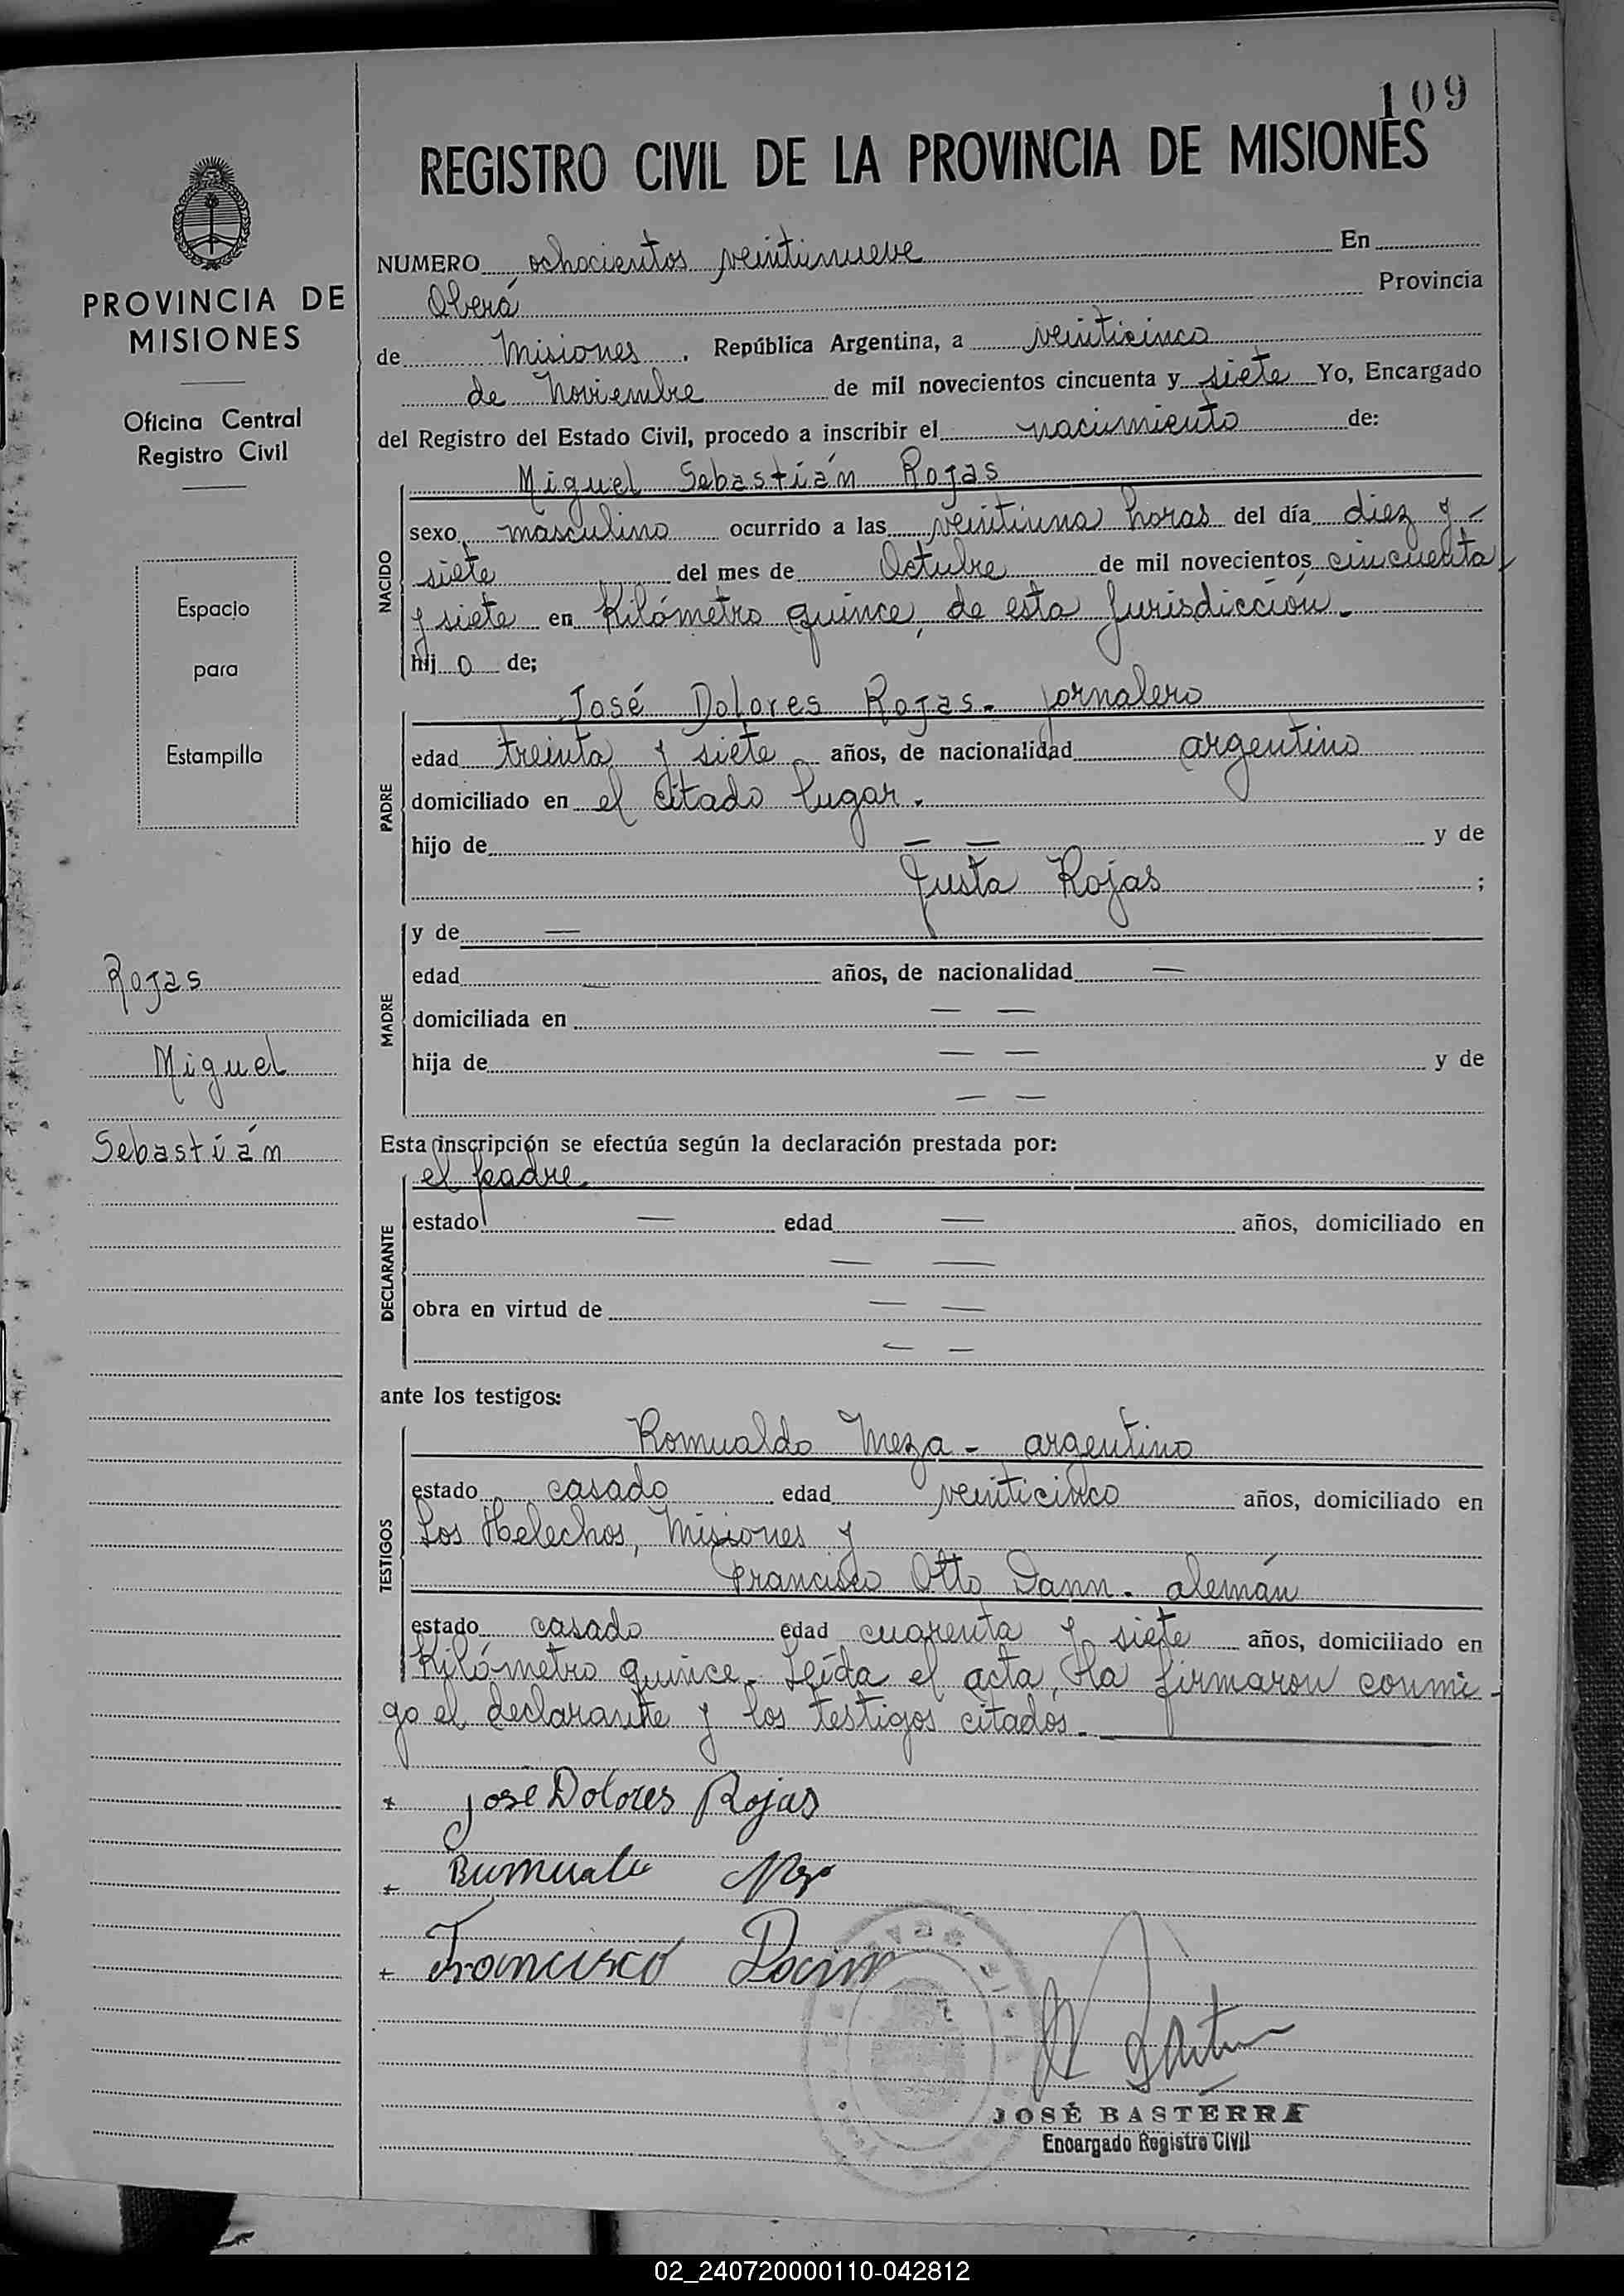 109
REGISTRO CIVIL DE LA PROVINCIA DE MISIONES
NUMERO ochocientos veintinueve En
Oberá Provincia
de Misiones. República Argentina, a veinticinco
de Noviembre de mil novecientos cincuenta y siete Yo, Encargado
del Registro del Estado Civil, procedo a inscribir el nacimiento de:
NACIDO
Miguel Sebastián Rojas
sexo masculino ocurrido a las veintiuna horas del día diez y -
siete del mes de Octubre de mil novecientos cincuenta
y siete en Kilómetro quince, de esta Jurisdicción.-
hij o de;
PADRE
José Dolores Rojas.- jornalero
edad treinta y siete años, de nacionalidad argentino
domiciliado en el citado lugar.
hijo de — — y de
Justa Rojas ;
MADRE
y de —
edad — años, de nacionalidad —
domiciliada en — —
hija de — — y de
— —
Esta inscripción se efectúa según la declaración prestada por:
DECLARANTE
el padre
estado — edad — años, domiciliado en
— —
obra en virtud de — —
— —
ante los testigos:
TESTIGOS
Romualdo Meza - argentino
estado casado edad veinticinco años, domiciliado en
Los Helechos, Misiones y
Francisco Otto Dann. alemán
estado casado edad cuarenta y siete años, domiciliado en
Kilómetro quince.- Leída el acta, la firmaron conmi-
go el declarante y los testigos citados.-
José Dolores Rojas
Francisco Dann
JOSÉ BASTERRA
Encargado Registro Civil
PROVINCIA DE
MISIONES
Oficina Central
Registro Civil
Espacio
para
Estampilla
Rojas
Miguel
Sebastián
02_240720000110-042812